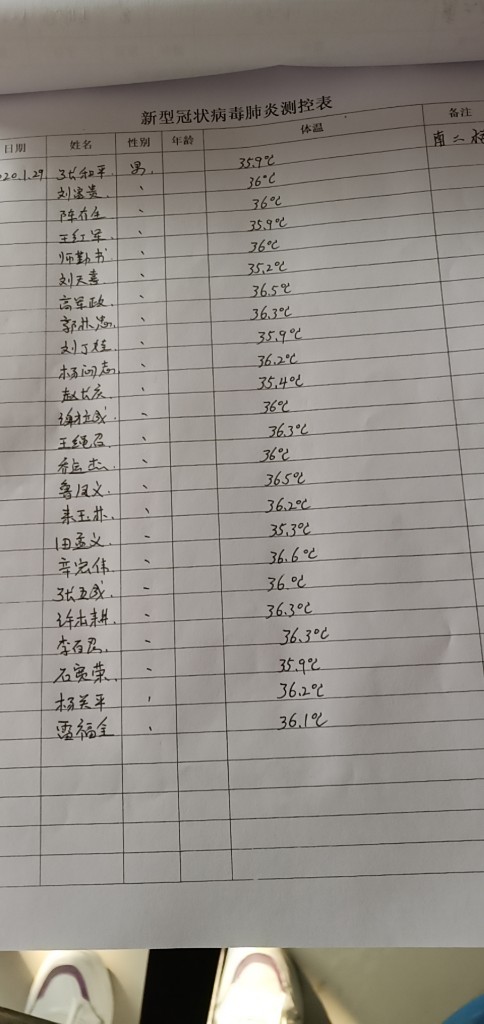 新型冠状病毒肺炎测控表
日期 姓名 性别 年龄 体温 备注
020.1.29 张和平. 男. 35.9℃ 南二
刘富贵 、 36℃
陈存全 、 36℃
王红军. 、 35.9℃
师勤书. 、 36℃
刘天喜 、 35.2℃
高军政. 、 36.5℃
郭林忠. 、 36.3℃
刘丁栓. 、 35.9℃
杨问志. 、 36.2℃
赵长庆. 、 35.4℃
徐拉成 、 36℃
王绳召. 、 36.3℃
杰. 、 36℃
鲁汉义. 、 36.5℃
朱玉林. 、 36.2℃
田孟义. 、 35.3℃
辛宏伟. 、 36.6℃
张五成. 、 36.℃
许本耕. 、 36.3℃
李百召. 、 36.3℃
石宽荣. 、 35.9℃
杨关平 、 36.2℃
雷福全 、 36.1℃